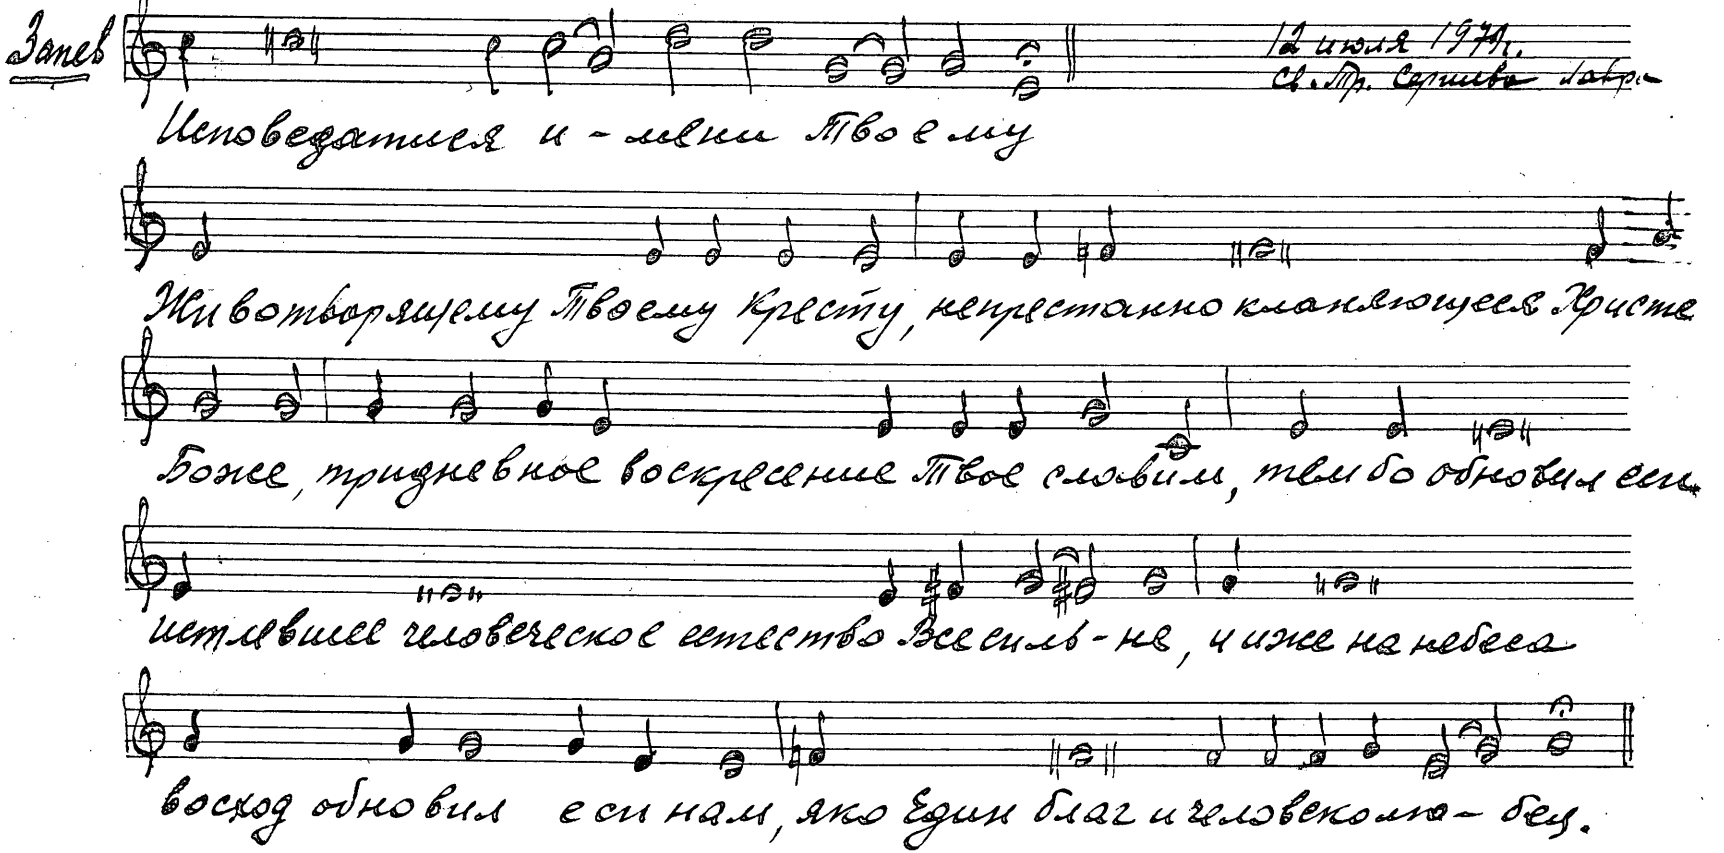 Запев
12 июля 1979г.
Св. Тр. Сергиева Лавра
Исповедатися и - мени Твоему
Животворящему Твоему Кресту, непрестанно кланяющеся Христе
Боже, тридневное воскресение Твое славим, тем бо обновил еси
истлевшее человеческое естество Всесиль - не, и иже на небеса
восход обновил еси нам, яко Един благ и человеколю - бец.